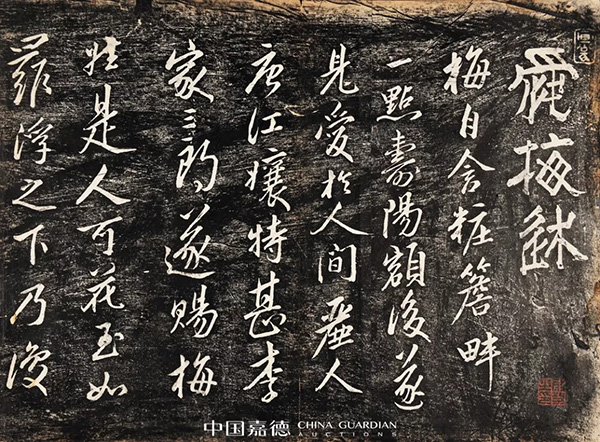 梅
梅自含粧簷畔
一點壽陽額後遂
見愛於人間人
唐江孃特甚李
家三郎遂賜梅
姓是人花至如
羅浮之下乃復
中国嘉德 CHINA GUARDIAN
AUCTIONS